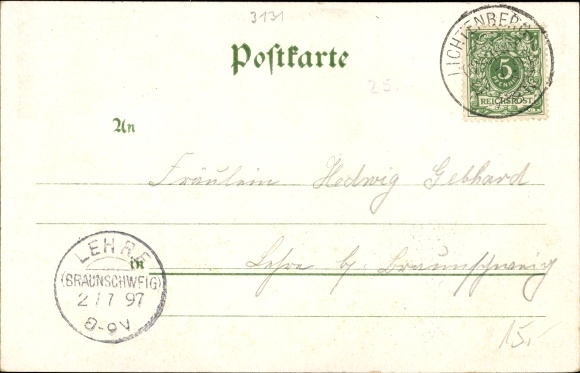 3131
Postkarte
LICHTENBERG
5
REICHSPOST
25.
An
Fräulein Hedwig Gebhard
in
Lehre b. Braunschweig
LEHRE
(BRAUNSCHWEIG)
2/7 97
8-9V
15.-